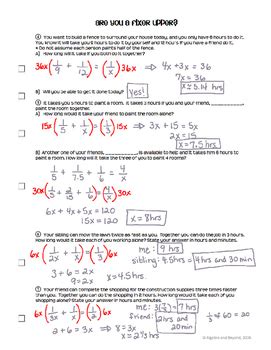 Are You a Fixer Upper?
① You want to build a fence to surround your house today, and you only have 6 hours to do it.
You know it will take you 9 hours to do it by yourself and 12 hours if you have a friend do it.
* Do not assume each person paints half of the fence.
A) How long will it take if you both do it?
36x(1/9 + 1/12) = (1/x)36x ⇒ 4x + 3x = 36
7x = 36
x ≈ 5.14 hrs
B) Will you be able to get it done today? Yes!
② It takes you 5 hours to paint a room. It takes 3 hours if you and your friend, paint the room together.
A) How long would it take
15x(1/5 + 1/x) = (1/3)15x ⇒ 3x + 15 = 5x
15 = 2x
x = 7.5 hrs
B) Another one of your friends, is available to help and it takes him 6 hours to paint a room. How long will it take the three of you to paint 4 rooms?
1/5 + 1/7.5 + 1/6 = 4/x
30x(1/5 + 2/15 + 1/6) = (4/x)30x
6x + 4x + 5x = 120
15x = 120
x = 8 hrs
③ Your sibling can mow the lawn twice as fast as you. Together you can do the job in 3 hours.
How long would it take each of you working alone? State your answer in hours and minutes.
6x(1/2x + 1/x) = (1/3)6x
me: 9 hrs
sibling: 4.5 hrs = 4 hrs and 30 min
3 + 6 = 2x
9 = 2x
x = 4.5 hrs.
④ Your friend can complete the shopping for the construction supplies three times faster than you. Together you can do the shopping in hours. How long would it take each of you shopping alone? State your answer in hours and minutes.
6x(1/3x + 1/x) = (1/2)6x
me: = 7 hrs
friend: 2 hrs and 20 min
1/3 of 60 = 20
2 + 6 = 3x ⇒ 8 = 3x
x = 2 1/3 hrs
© Algebra and Beyond, 2020